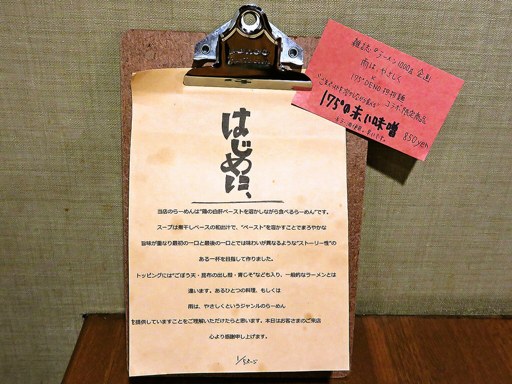 はじめに、
当店のらーめんは"鶏の白肝ペーストを溶かしながら食べるらーめん"です。
スープは煮干しベースの和出汁で、"ペースト"を溶かすことでまろやかな
旨味が重なり最初の一口と最後の一口とでは味わいが異なるような"ストーリー性"の
ある一杯を目指して作りました。
トッピングには"ごぼう天・昆布の出し殻・青じそ"なども入り、一般的ならーめんとは
違います。あるひとつの料理、もしくは
雨は、やさしくというジャンルのらーめん
を提供していますことをご理解いただけたらと思います。本日はお客さまのご来店
心より感謝申し上げます。
雑誌 ラーメン1000点 企画
雨は、やさしく
×
175°DENO担担麺
コラボ 限定商品
175°の赤い味噌
850yen